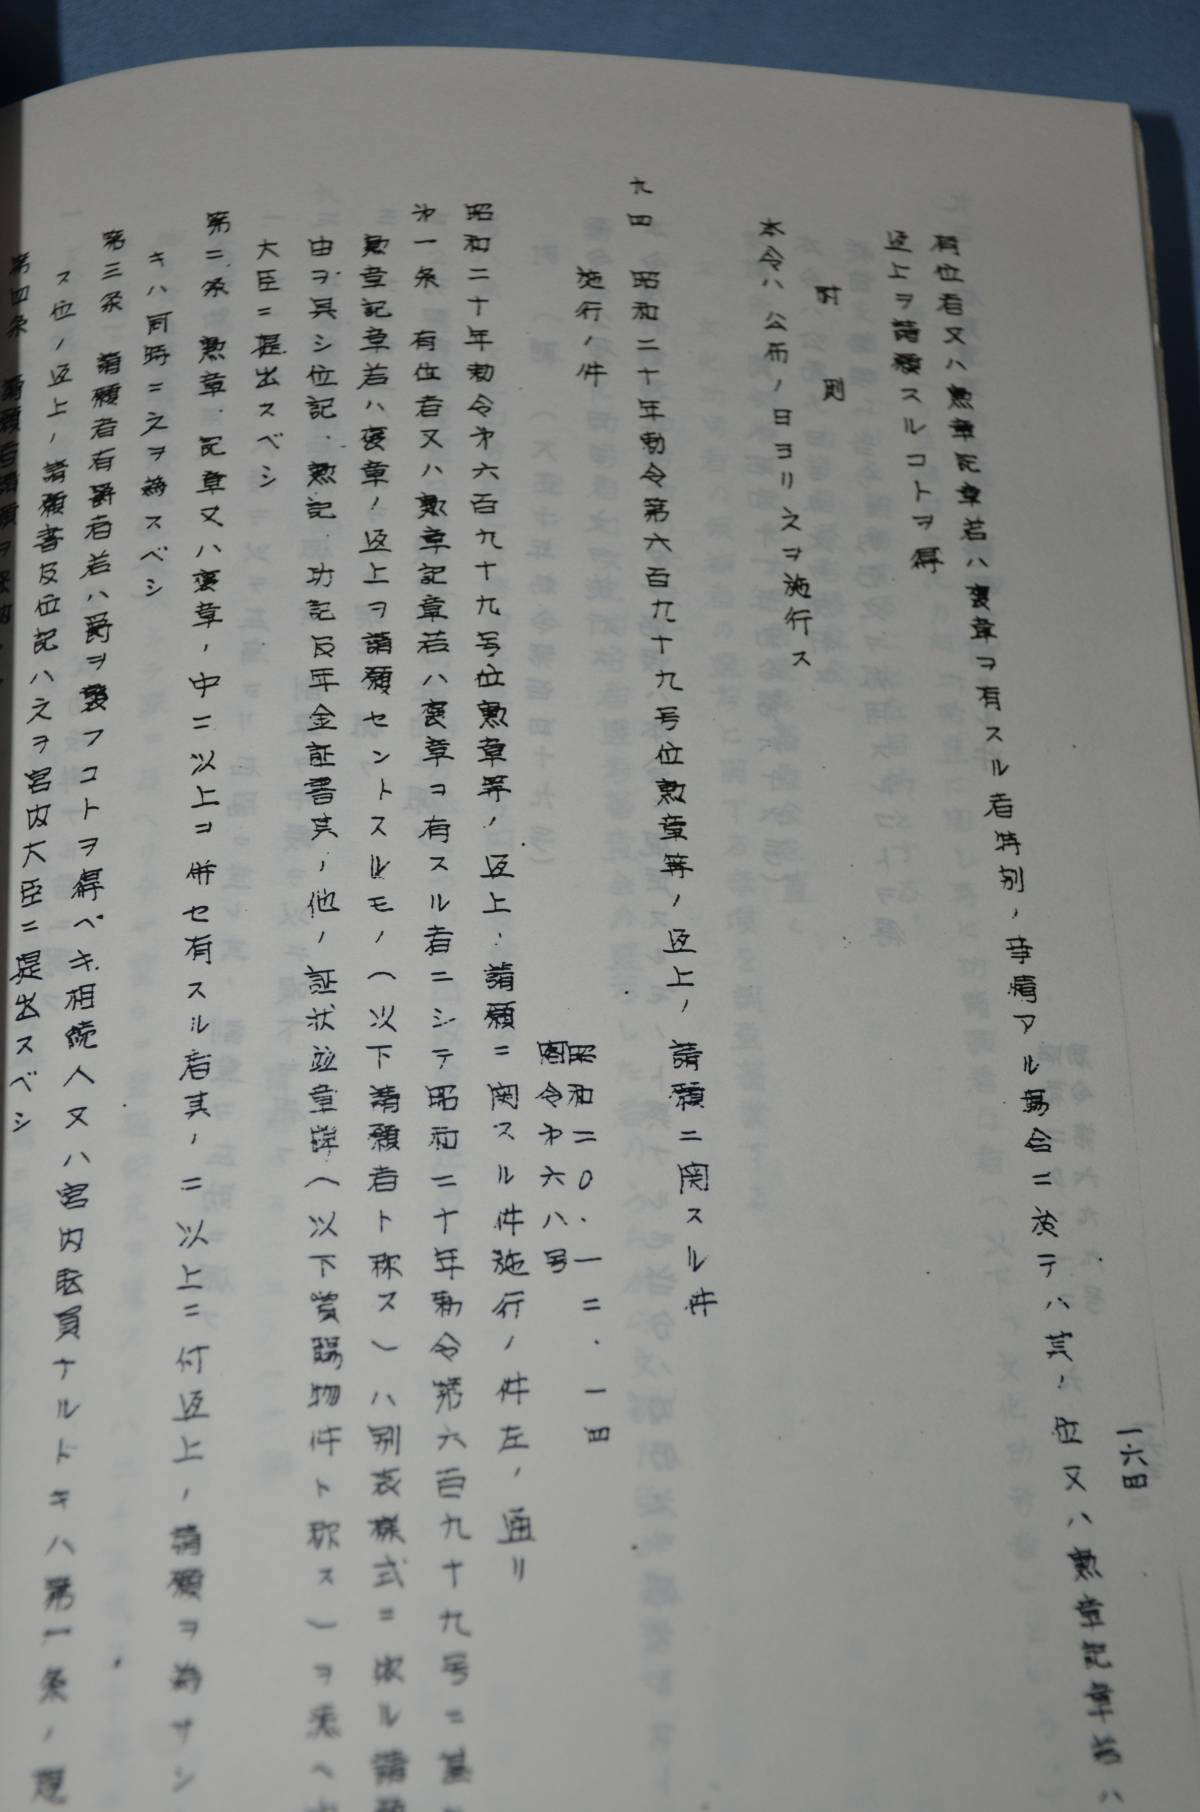 一六四
有位者又ハ勲章記章若ハ褒章ヲ有スル者特別ノ事情アル場合ニ於テハ其ノ位又ハ勲章記章若ハ
返上ヲ請願スルコトヲ得
附則
本令ハ公布ノ日ヨリ之ヲ施行ス
九四 昭和二十年勅令第六百九十九号位勲章等ノ返上ノ請願ニ関スル件
施行ノ件
昭和二〇・一二・一四
閣令第六八号
昭和二十年勅令第六百九十九号位勲章等ノ返上ノ請願ニ関スル件施行ノ件左ノ通リ
第一条 有位者又ハ勲章記章若ハ褒章ヲ有スル者ニシテ昭和二十年勅令第六百九十九号ニ基
勲章記章若ハ褒章ノ返上ヲ請願セントスルモノ(以下請願者ト称ス)ハ別表様式ニ依ル請願
由ヲ具シ位記、勲記、功記及年金証書其ノ他ノ証状並章牌(以下賞賜物件ト称ス)ヲ添ヘ
大臣ニ提出スベシ
第二条 勲章、記章又ハ褒章ノ中二以上ヲ併セ有スル者其ノ二以上ニ付返上ノ請願ヲ為サン
キハ同時ニ之ヲ為スベシ
第三条 請願者有爵者若ハ爵ヲ襲フコトヲ得ベキ相続人又ハ宮内職員ナルトキハ第一条ノ規
ス位ノ返上ノ請願書及位記ハ之ヲ宮内大臣ニ提出スベシ
第四条 請願者請願ヲ